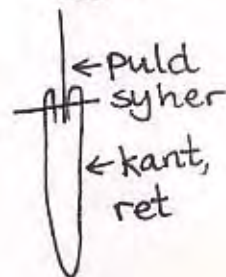 ← puld
syher
← kant,
ret